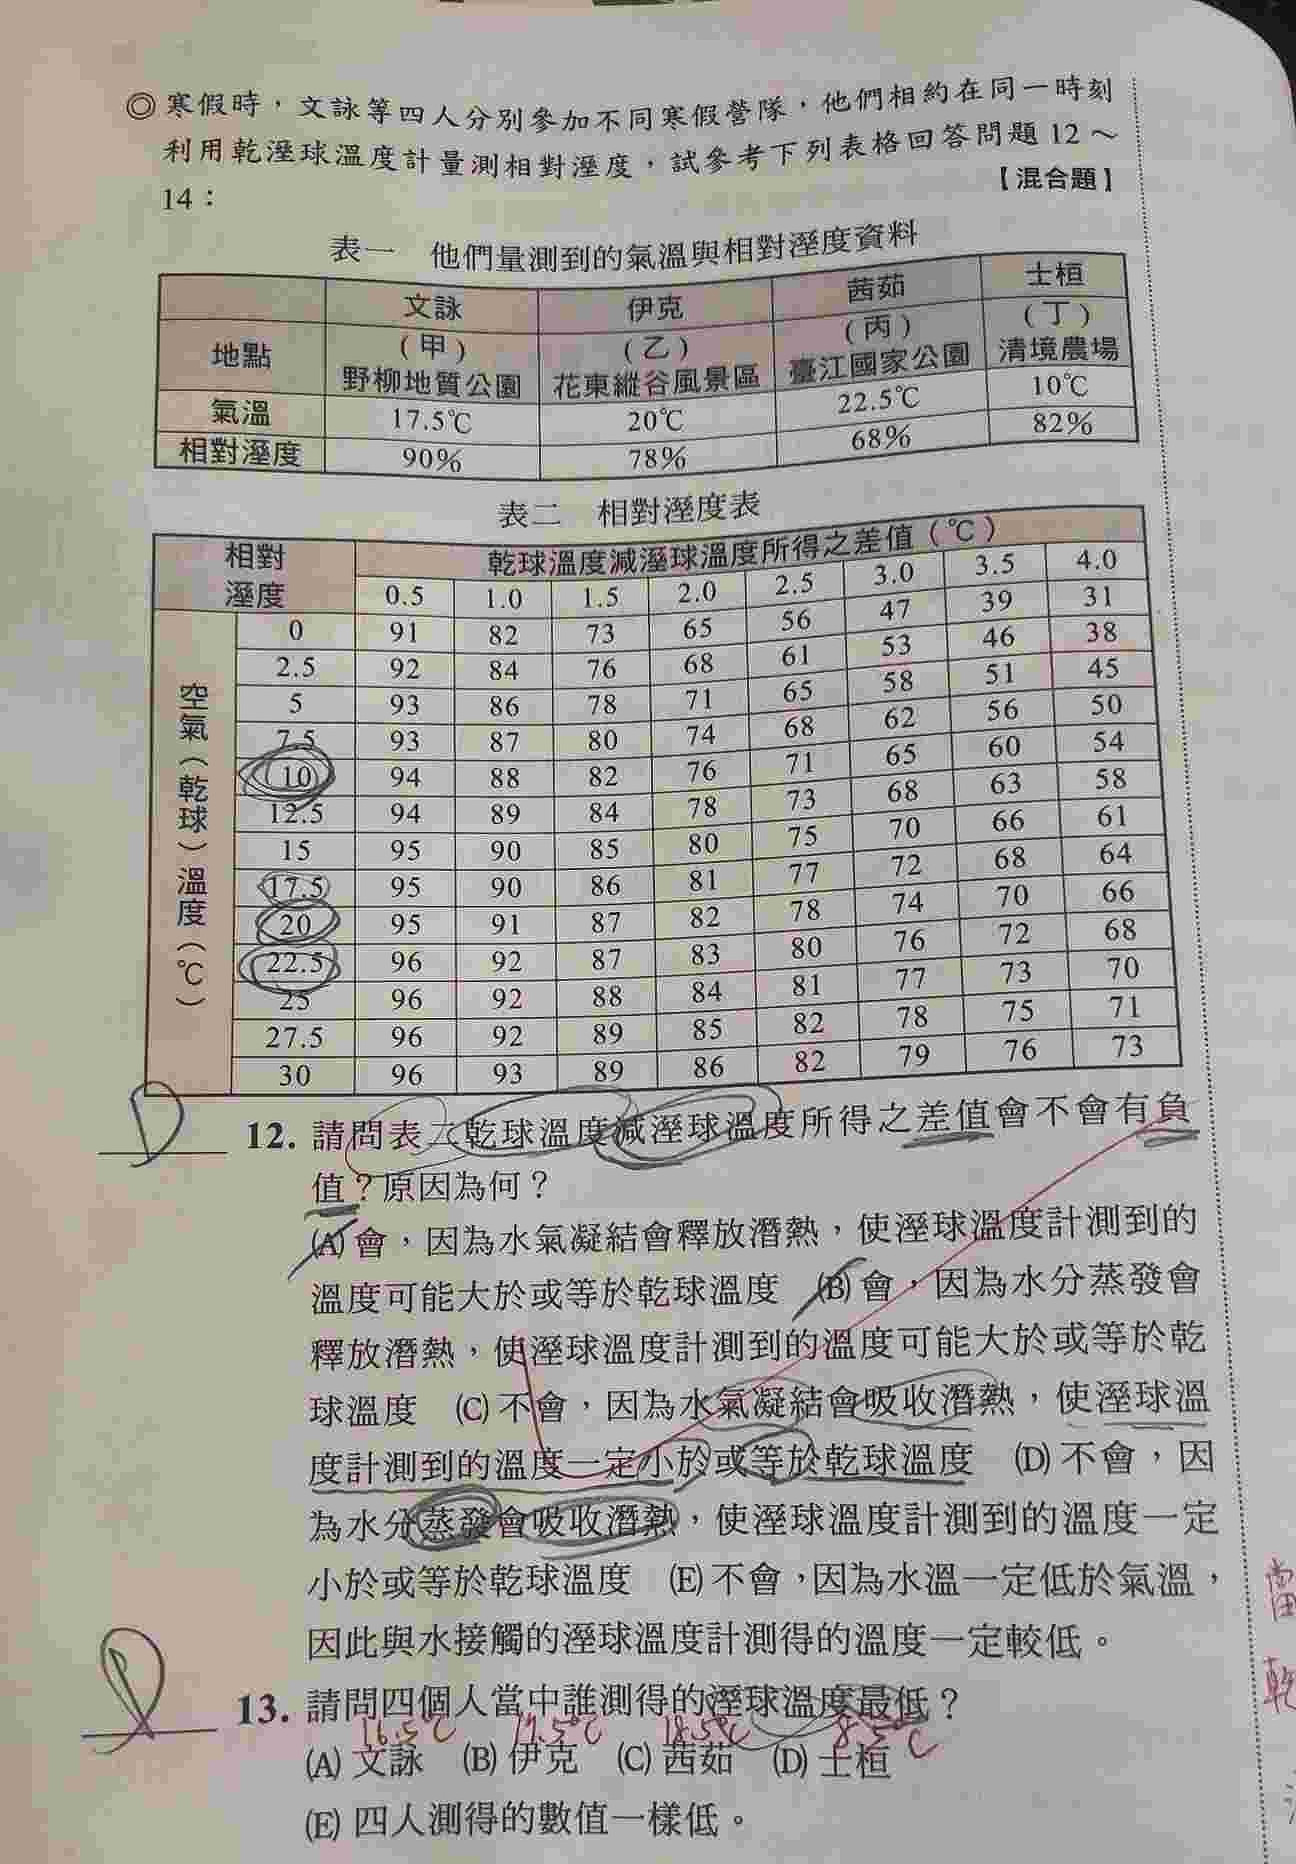 ◎寒假時，文詠等四人分別參加不同寒假營隊，他們相約在同一時刻
利用乾溼球溫度計量測相對溼度，試參考下列表格回答問題12～
14： 【混合題】
表一 他們量測到的氣溫與相對溼度資料
文詠 伊克 茜茹 士桓
地點 (甲) (乙) (丙) (丁)
野柳地質公園 花東縱谷風景區 臺江國家公園 清境農場
氣溫 17.5℃ 20℃ 22.5℃ 10℃
相對溼度 90% 78% 68% 82%
表二 相對溼度表
相對溼度 乾球溫度減溼球溫度所得之差值(℃)
0.5 1.0 1.5 2.0 2.5 3.0 3.5 4.0
空氣(乾球)溫度(℃)
0 91 82 73 65 56 47 39 31
2.5 92 84 76 68 61 53 46 38
5 93 86 78 71 65 58 51 45
7.5 93 87 80 74 68 62 56 50
10 94 88 82 76 71 65 60 54
12.5 94 89 84 78 73 68 63 58
15 95 90 85 80 75 70 66 61
17.5 95 90 86 81 77 72 68 64
20 95 91 87 82 78 74 70 66
22.5 96 92 87 83 80 76 72 68
25 96 92 88 84 81 77 73 70
27.5 96 92 89 85 82 78 75 71
30 96 93 89 86 82 79 76 73
D 12. 請問表二乾球溫度減溼球溫度所得之差值會不會有負
值？原因為何？
(A)會，因為水氣凝結會釋放潛熱，使溼球溫度計測到的
溫度可能大於或等於乾球溫度 (B)會，因為水分蒸發會
釋放潛熱，使溼球溫度計測到的溫度可能大於或等於乾
球溫度 (C)不會，因為水氣凝結會吸收潛熱，使溼球溫
度計測到的溫度一定小於或等於乾球溫度 (D)不會，因
為水分蒸發會吸收潛熱，使溼球溫度計測到的溫度一定
小於或等於乾球溫度 (E)不會，因為水溫一定低於氣溫，
因此與水接觸的溼球溫度計測得的溫度一定較低。
當
乾
D 13. 請問四個人當中誰測得的溼球溫度最低？
16.5℃ 17.5℃ 18.5℃ 8.5℃
(A)文詠 (B)伊克 (C)茜茹 (D)士桓
(E)四人測得的數值一樣低。